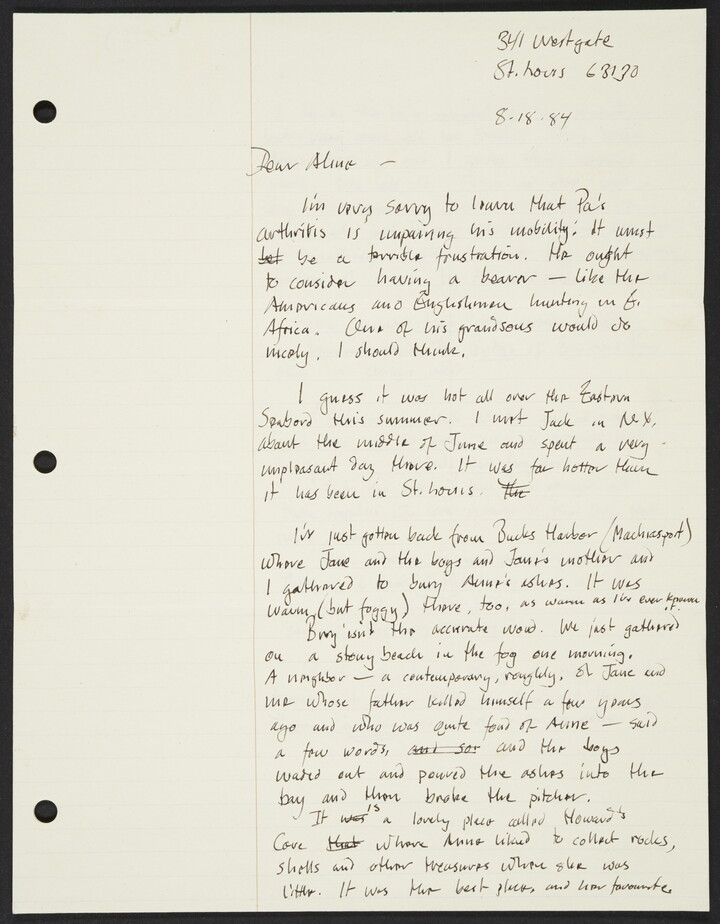 341 Westgate
St. Louis 63130
8-18-84
Dear Aline —
I'm very sorry to learn that Pa's
arthritis is impairing his mobility. It must
bet be a terrible frustration. He ought
to consider having a bearer — like the
Americans and Englishmen hunting in E.
Africa. One of his grandsons would do
nicely, I should think.
I guess it was hot all over the Eastern
Seabord this summer. I met Jack in N.Y.
about the middle of June and spent a very
unpleasant day there. It was far hotter than
it has been in St. Louis. The
I've just gotten back from Bucks Harbor (Machiasport)
where Jane and the boys and Jane's mother and
I gathered to bury Anne's ashes. It was
warm (but foggy) there, too, as warm as I've ever known
it.
"Bury" isn't the accurate word. We just gathered
on a stony beach in the fog one morning.
A neighbor — a contemporary, roughly, of Jane and
me whose father killed himself a few years
ago and who was quite fond of Anne — said
a few words, and sor and the boys
waded out and poured the ashes into the
bay and then broke the pitcher.
It was is a lovely place called Howard's
Cove that where Anne liked to collect rocks,
shells and other treasures when she was
little. It was the best place, and her favourite.